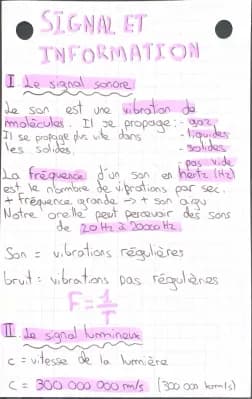 SIGNAL ET
INFORMATION
I Le signal sonore
Le son est une vibration de
molécules. Il se propage : - gaz
Il se propage plus vite dans - liquides
les solides. - solides
- pas vide
La fréquence d'un son en hertz (Hz)
est le nombre de vibrations par sec.
+ fréquence grande → + son aigu
Notre oreille peut percevoir des sons
de 20 Hz à 20000 Hz.
Son = vibrations régulières
bruit : vibrations pas régulières
F = 1/T
II. Le signal lumineux
c = vitesse de la lumière
c = 300 000 000 m/s (300 000 km/s)